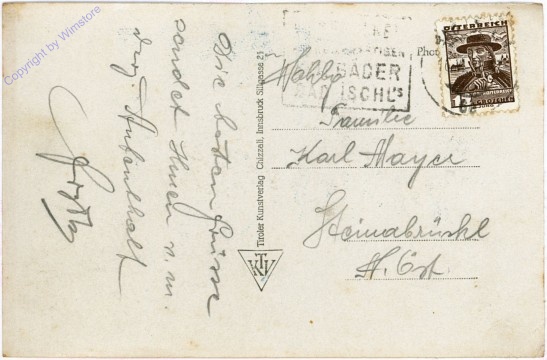 Copyright by Wimstore
Die besten Grüsse
sendet Ihnen v. m.
derz. Aufenthalt
Tiroler Kunstverlag Chizzali, Innsbruck Sillgasse 21
KTV
BÄDER
BAD ISCHL's
Phot
ÖSTERREICH
GROSCHEN
Familie
Karl Mayer
Steinabrückl
N. Öst.